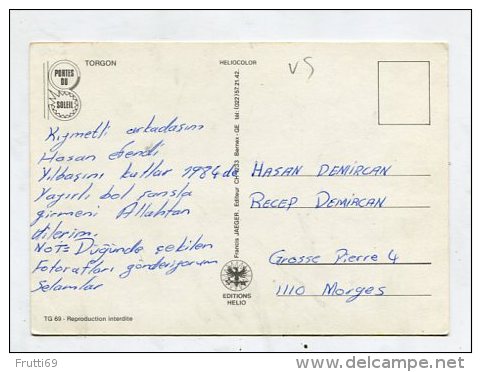 PORTES
DU
SOLEIL
TORGON
HELIOCOLOR
VS
Kıymetli arkadaşım
Hasan Efendi
Yılbaşını kutlar 1984 de
Yağırlı bol şansla
girmeni Allahtan
dilerim.
NOT= Düğünde çekilen
Fotorafları gönderiyorum
Selamlar
HASAN DEMİRCAN
RECEP DEMİRCAN
Grosse Pierre 4
1110 Morges
Francis JAEGER, Editeur CH-1233 Bernex-GE tél. (022) 57.21.42.
EDITIONS
HELIO
TG 69 - Reproduction interdite
Frutti69
www.delcampe.net